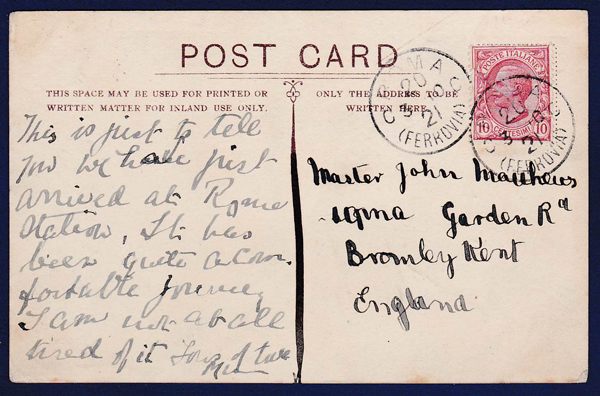 POST CARD
THIS SPACE MAY BE USED FOR PRINTED OR
WRITTEN MATTER FOR INLAND USE ONLY.
ONLY THE ADDRESS TO BE
WRITTEN HERE.
This is just to tell
you we have just
arrived at Rome
Station, It has
been quite a com.
fortable journey
I am not at all
tired of it
Master John Matthews
Garden Rd
Bromley Kent
England
POSTE ITALIANE
10 CENTESIMI 10
ROMA
20
21
(FERROVIA)
ROMA
20
21
(FERROVIA)